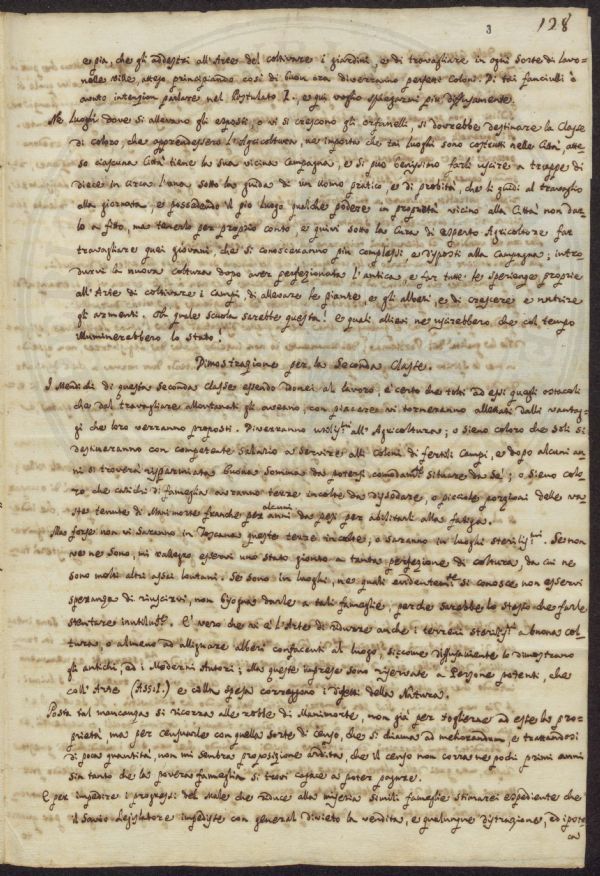 3 128
e pia, che gli addestri all'Arte del coltivare i giardini, e di travagliare in ogni sorte di lavo-
nelle ville, principiando così di buon ora diverranno perfetti Coloni. Di tai fanciulli è
avuto intenzion parlare nel Postulato I., e qui voglio spiegarmi più diffusamente.
Ne Luoghi dove si allevano gli esposti, o vi si crescono gli orfanelli, si dovrebbe destinare la Classe
di coloro, che apprendessero l'Agricoltura, ne importa che tai luoghi sono costrutti nelle Città, atte-
so ciascuna Città tiene la sua vicina Campagna, e si può benissimo farli uscire a truppe di
diece in circa l'una sotto la guida di un uomo pratico, e di probità, che li guidi al travaglio
alla giornata, e possedendo il pio luogo qualche podere in proprietà vicino alla Città non dar-
lo a fitto, ma tenerlo per proprio conto, e quivi sotto la Cura di esperto Agricoltore far
travagliare quei giovani, che si conosceranno più complessi, e disposti alla Campagna; intro
durvi la nuova coltura dopo aver perfezionata l'antica, e far tutte le sperienze proprie
all'Arte di coltivare i campi, di allevare le piante, e gli alberi, e di crescere e nutrire
gli armenti. Oh quale scuola sarebbe questa! e quali allievi ne uscirebbero, che col tempo
illuminerebbero lo stato!
Dimostrazione per la Seconda Classe.
I Mendichi di questa seconda classe essendo idonei al lavoro, è certo che tolti ad essi quegli ostacoli
che dal travagliare allontanati gli aveano, con piacere vi torneranno allettati dalli vantag-
gi che loro verranno proposti. Diverranno all'Agricoltura; o sieno coloro che soli si
destineranno con competente salario a servire alli coloni di fertili Campi, e dopo alcuni an-
ni si troverà risparmiata buona somma da potersi situare da se; o sieno colo-
ro, che carichi di fameglia avranno terre incolte da dissodare, o picciole porzioni delle va-
ste tenute di Manimorte franche per alcuni anni da pesi per abilitarli alla fatiga.
Ma forse non vi saranno in Toscana queste terre incolte, o saranno in luoghi Se non
ve ne sono, mi rallegro esservi uno stato gionto a tanta perfezione di coltura, da cui ne
sono molti altri assai lontani. Se sono in luoghi, ne quali si conosce non esservi
speranza di riuscirvi, non bisogna darle a tali fameglie, perche sarebbe lo stesso che farle
stentare È vero che vi è l'Arte di ridurre anche i terreni a buona col-
tura, o almeno ad allignare alberi confacenti al luogo, siccome diffusamente lo dimostrano
gli antichi, ed i Moderni Autori; Ma queste imprese sono riservate a Persone potenti, che
coll'Arte (Assi.) e colla spesa correggono i difetti della Natura.
Posta tal mancanza si ricorra alle robbe di Manimorte, non già per toglierne ad esse la pro-
prietà ma per censuarle con quella sorte di censo, che si chiama ad meliorandum, e trattandosi
di poca quantità, non mi sembra proposizione ardita, che il censo non corra ne pochi primi anni
sin tanto che la povera fameglia si trovi capace a poter pagare.
E per impedire i progressi del male che riduce alla miseria simili fameglie stimarei espediente che
il Savio Legislatore impedisse con general divieto la vendita, e qualunque distrazione, ed ipote
ca